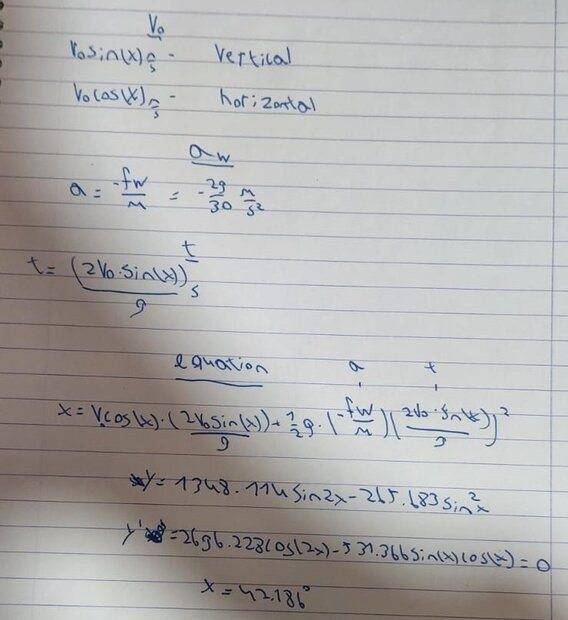 V₀
V₀sin(x) m/s - vertical
V₀cos(x) m/s - horizontal
aw
a = -fw/m = -29/30 m/s²
t
t = (2V₀·sin(x))/g s
equation a t
x = V₀cos(x)·(2V₀sin(x))/g + 1/2 g·(-fw/m)(2V₀·sin(x)/g)²
y = 1348.114sin2x - 265.683sin²x
y' = 2696.228cos(2x) - 531.366sin(x)cos(x) = 0
x = 42.186°